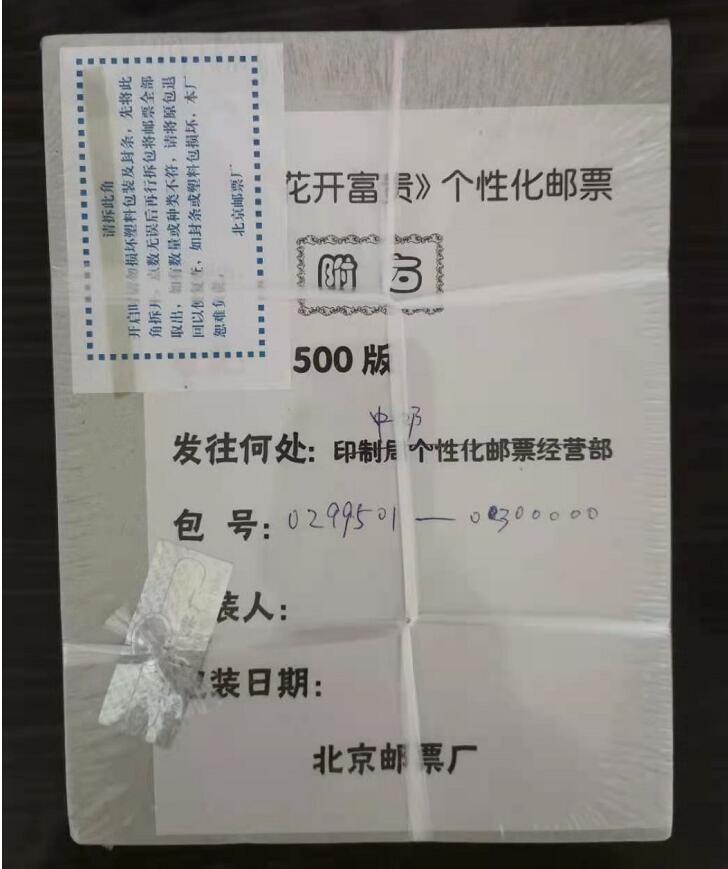 请拆此角
开启时请勿损坏塑料包装及封条，先将此
角拆开，点数无误后再行拆包将邮票全部
取出，如有数量或种类不符，请将原包退
回以便复查，如封条或塑料包损坏，本厂
恕难负责。
北京邮票厂
花开富贵》个性化邮票
附 方
500 版
中邮
发往何处：印制局个性化邮票经营部
包 号：0299501 — 0300000
装人：
装日期：
北京邮票厂